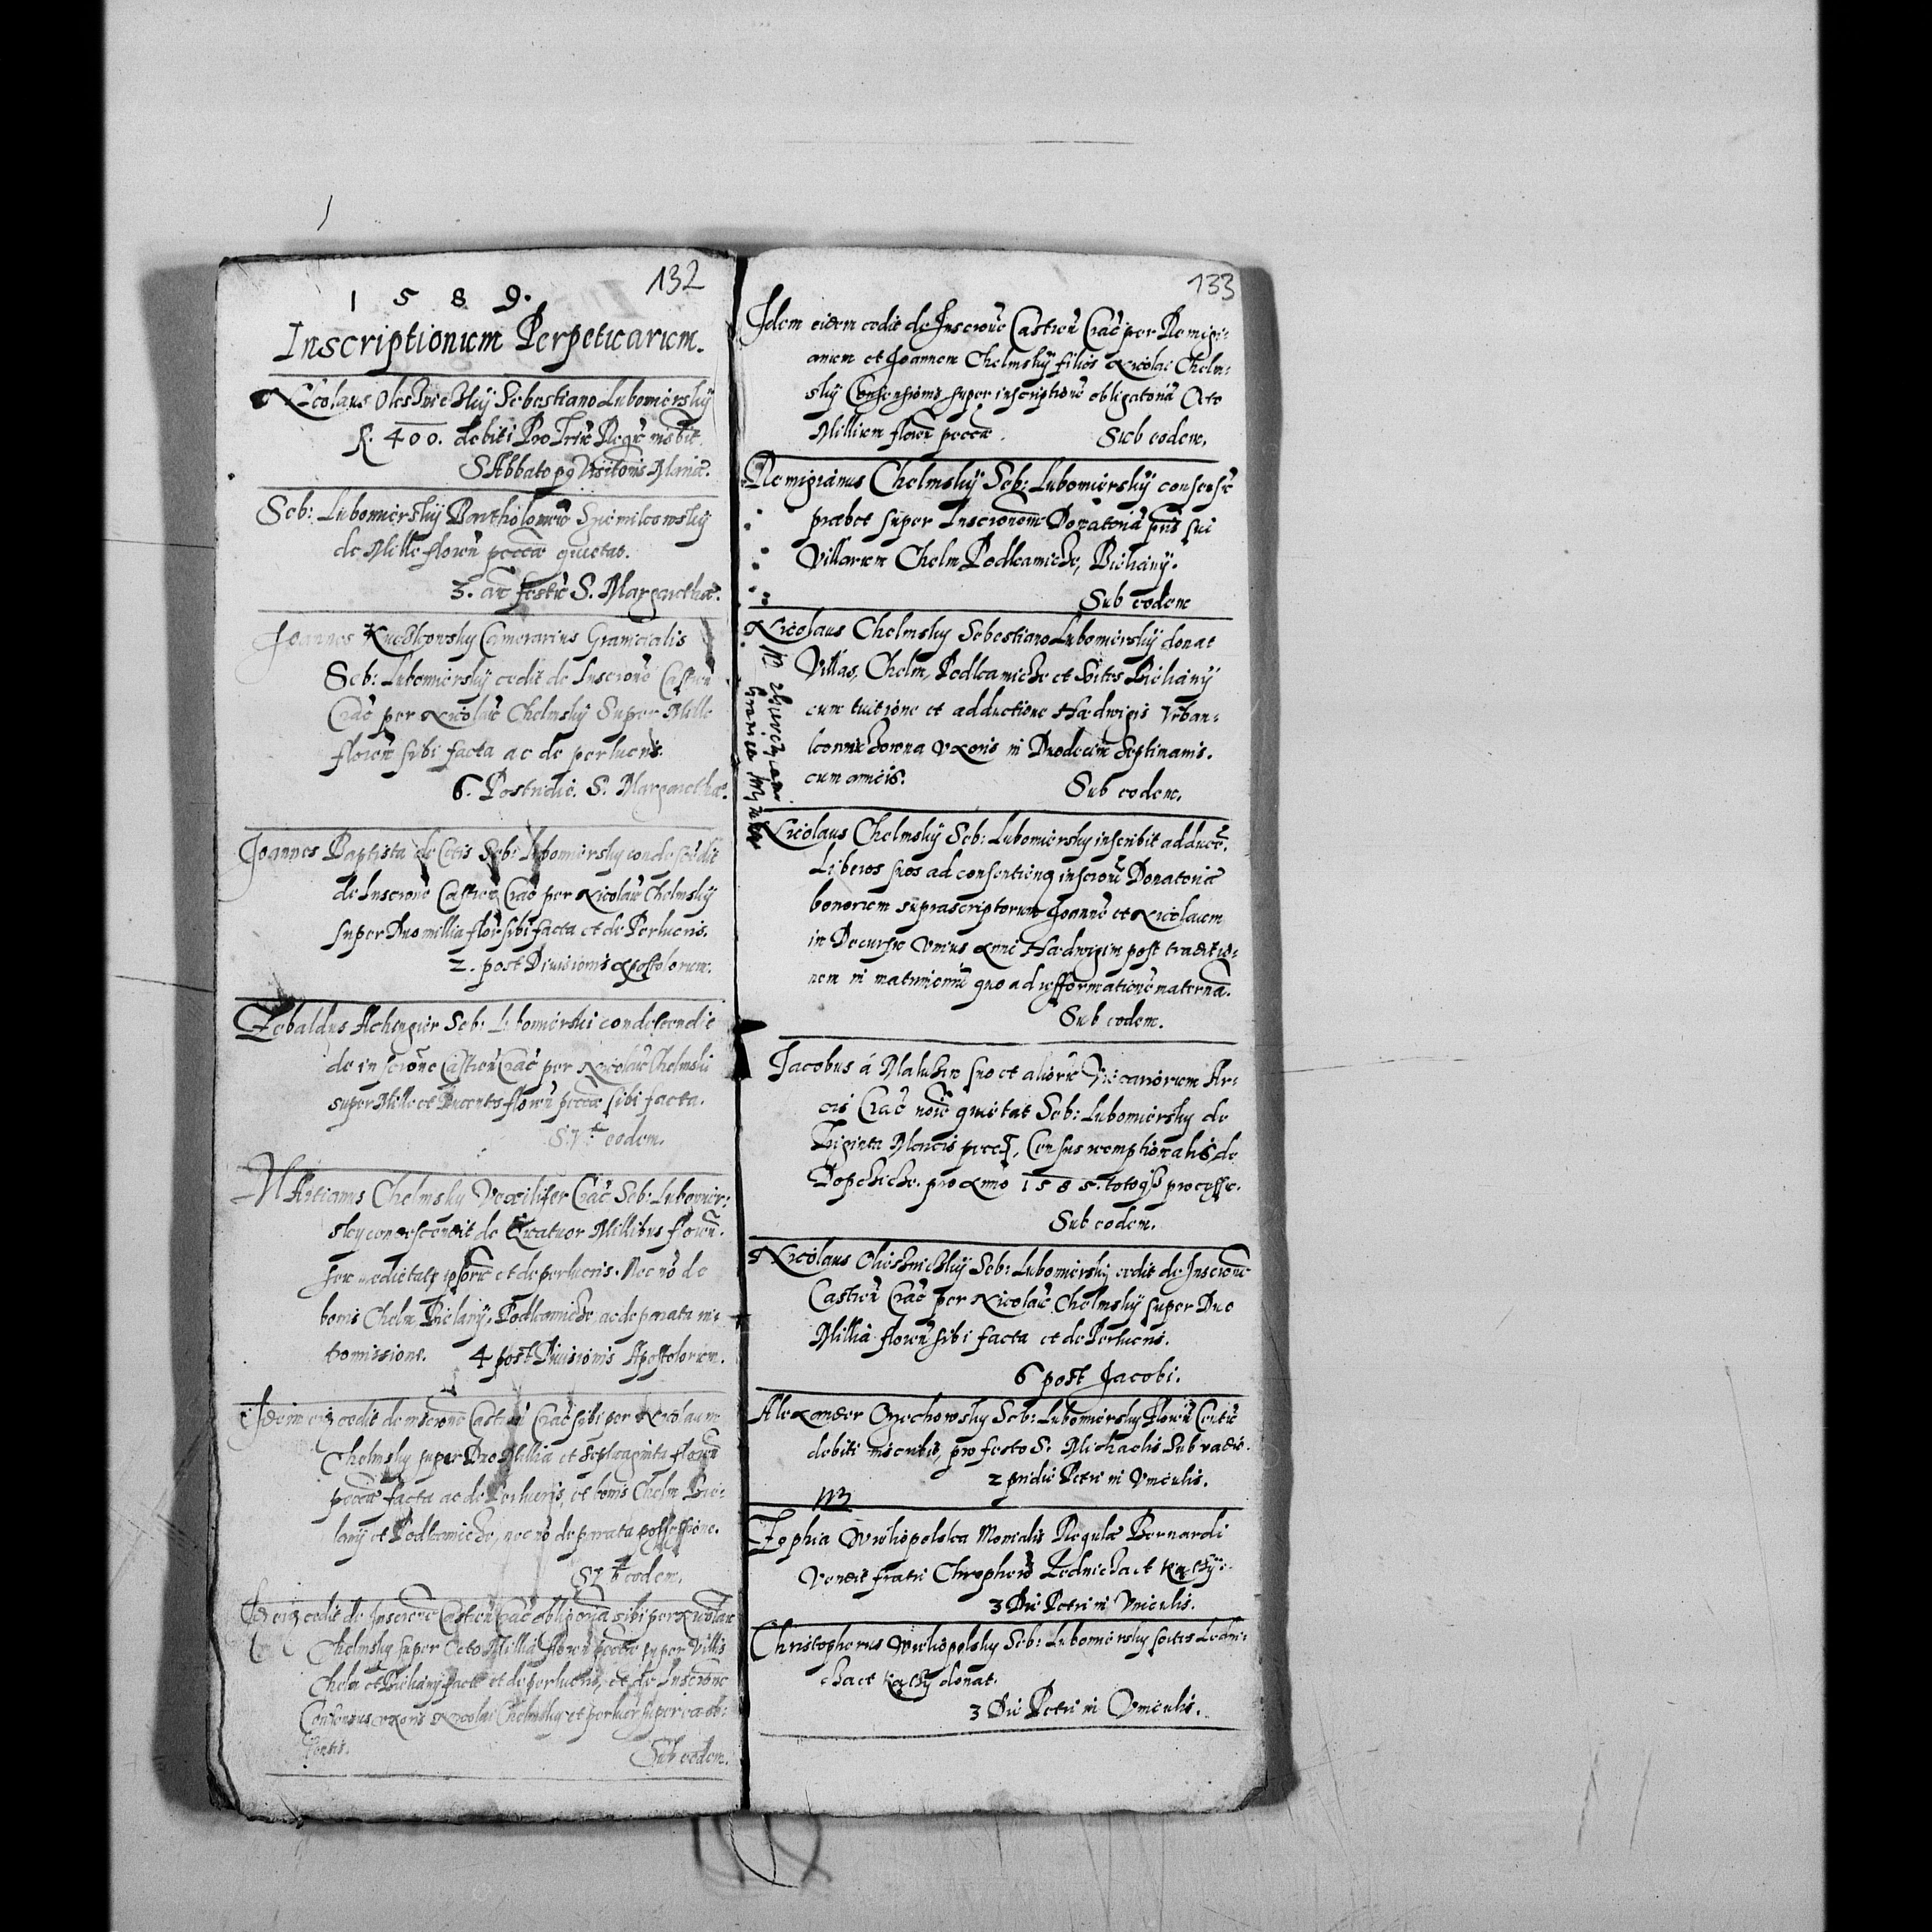 132
1 5 8 9.
Inscriptionum Perpetuarum.
Nicolaus Olesniczkÿ Sebestiano Lubomirskÿ
fl. 400. debiti Pro
SAbbato Visitationis Mariæ.
Seb: Lubomirskÿ Bartholomeū
de Mille floreñ peccæ quietat.
3. añ festū S. Margarethæ.
Joannes Camerarius Granicialis
Seb: Lubomirskÿ cedit de Inscrone Castreñ
Crac per Nicolaū Chelmskÿ Super Mille
floreñ sibi facta ac de perlucris.
6. Postridie. S. Margarethæ.
Joannes Baptista de Cetis Seb: Lubomirsky condescēdit
de Inscrone Castreñ Crac per Nicolaū Chelmskÿ
super Duo millia floreñ sibi facta et de Perlucris.
2. post Diuisionis Apostolorum.
Tebaldus Achinger Seb: Lubomirski condescendit
de inscrone Castreñ Crac per Nicolaū Chelmski
super Mille et Ducentos floreñ peccæ sibi facta.
eodem.
MArtianus Chelmsky Vexilifer Crac Seb: Lubomir:
sky condescendit de Quatuor Millibus floreñ.
seu medietate ipsorū et de perlucris. Nec nō de
bonis Chelm Bielanÿ, Podleamicze, ac de parata in:
tromissione. 4 post Diuisionis Apostolorum.
Idem cedit de inscrone Castreñ Crac sibi per Nicolaum
Chelmsky super Duo Millia et Septuaginta floreñ
peccæ facta ac de Perlucris, et bonis Chelm Bie:
lany et Podleamicze, nec nō de parata possessione.
eodem.
Idem cedit de Inscrone Castreñ Crac obligoria sibi per Nicolaū
Chelmsky super Octo Millia floreñ peccæ super Villis
Chelm et Bielanÿ facta et de perlucris, et de Inscrone
Consensus uxoris Nicolai Chelmsky et perlucris super ea ob:
Sub eodem.
133
Idem eidem cedit de Inscrone Castreñ Crac per Remigi:
anum et Joannem Chelmskÿ filios Nicolai Chelm:
skÿ Consensionis super inscriptione obligatoria Octo
Millium floreñ peccæ. Sub eodem.
Remigianus Chelmskÿ Seb: Lubomirskÿ consensū
præbet super Inscronem Donatoriā pris sui
Villarum Chelm Podleamicze, Bielianÿ.
Sub eodem
Nicolaus Chelmsky Sebestiano Lubomirskÿ donat
Villas, Chelm, Podleamicze et Sortes Bielianÿ
cum tuitione et adductione Hedwigis Vrban:
kowniczowna Vxoris in Duodecim Septimanis.
cum amicis. Sub eodem.
Nicolaus Chelmskÿ Seb: Lubomirsky inscribit adducē:
Liberos suos ad consentienđ inscrone Donatoriæ
bonorum suprascriptorum Joannē et Nicolaum
in Decursu Vnius Anni Hedwigim post traditio:
nem in matrimoniū quo ad reformationē maternā.
Sub eodem.
Jacobus á suo et aliorū Vicariorum Ar:
cis Crac noīe quietat Seb: Lubomirsky de
Triginta Marcis Census reemptionalis de
Dopczicze. pro Anno 1585. totoqз processu.
Sub eodem.
Nicolaus Oliesniczkÿ Seb: Lubomirsky cedit de Inscrone
Castreñ Crac per Nicolaū Chelmskÿ super Duo
Millia floreñ sibi facta et de Perlucris.
6 post Jacobi.
Alexander Orzechowsky Seb: Lubomirsky floreñ Centū
debiti inscribit, pro festo S. Michaelis Sub vadio.
2 pridie Petri in Vinculis.
Zophia Wielopolska Monialis Regulæ Bernardi
Vendit fratri Chrophorō Lednicza et
3 Die Petri in Vinculis.
Christophorus Wielopolsky Seb: Lubomirsky sortes Ledni:
cza et donat.
3 Die Petri in Vinculis.